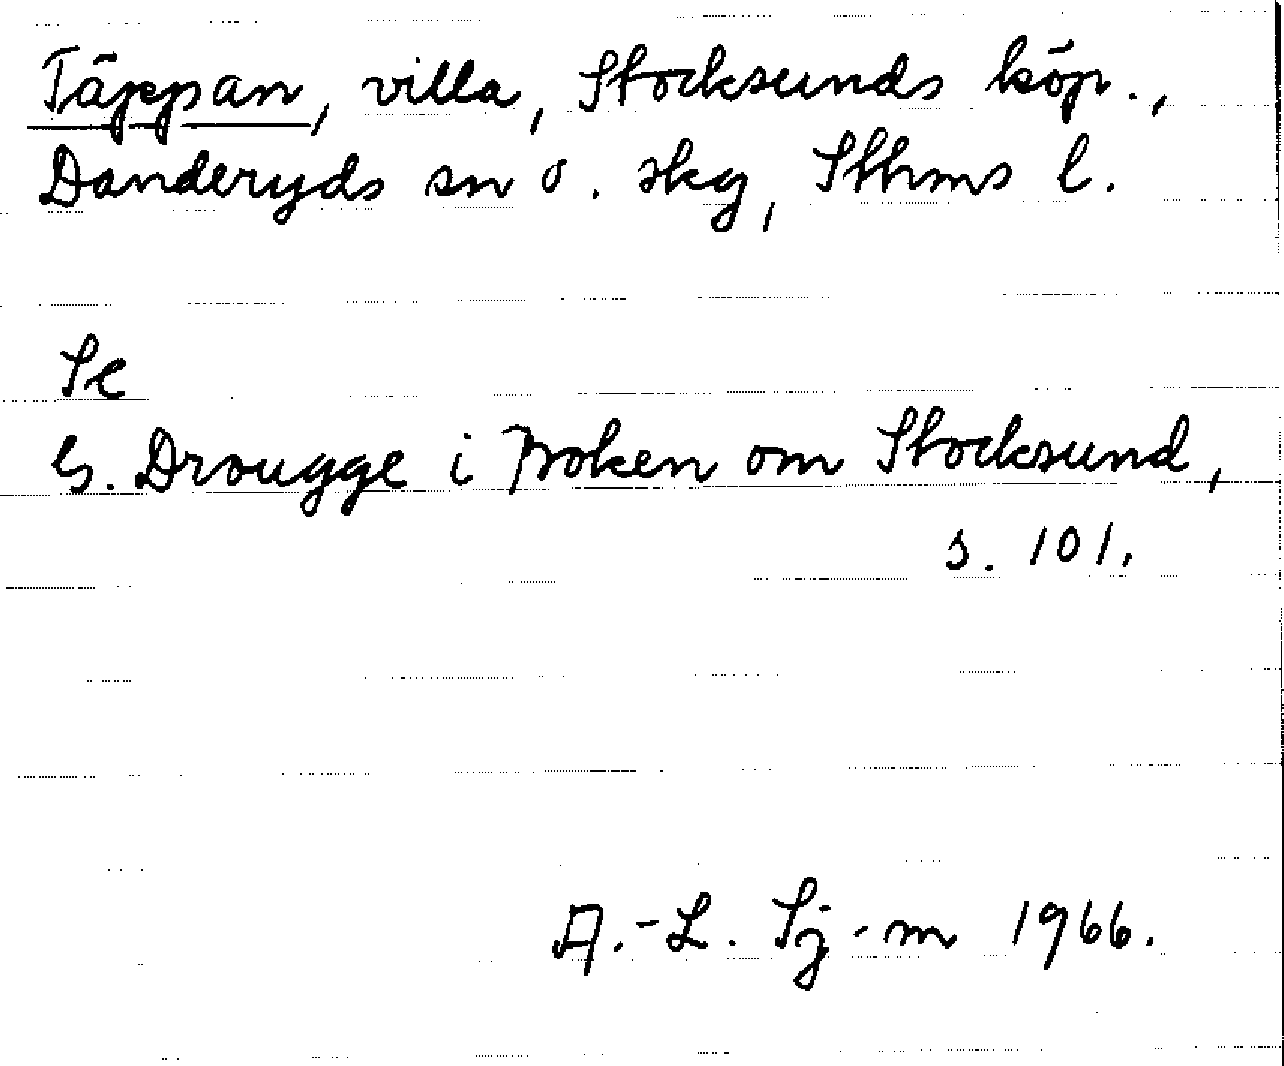 Täppan, villa, Stocksunds köp.,
Danderyds sn o. skg, Sthms l.
Se
G. Drougge i Boken om Stocksund,
s. 101.
A.-L. Sj-m 1966.